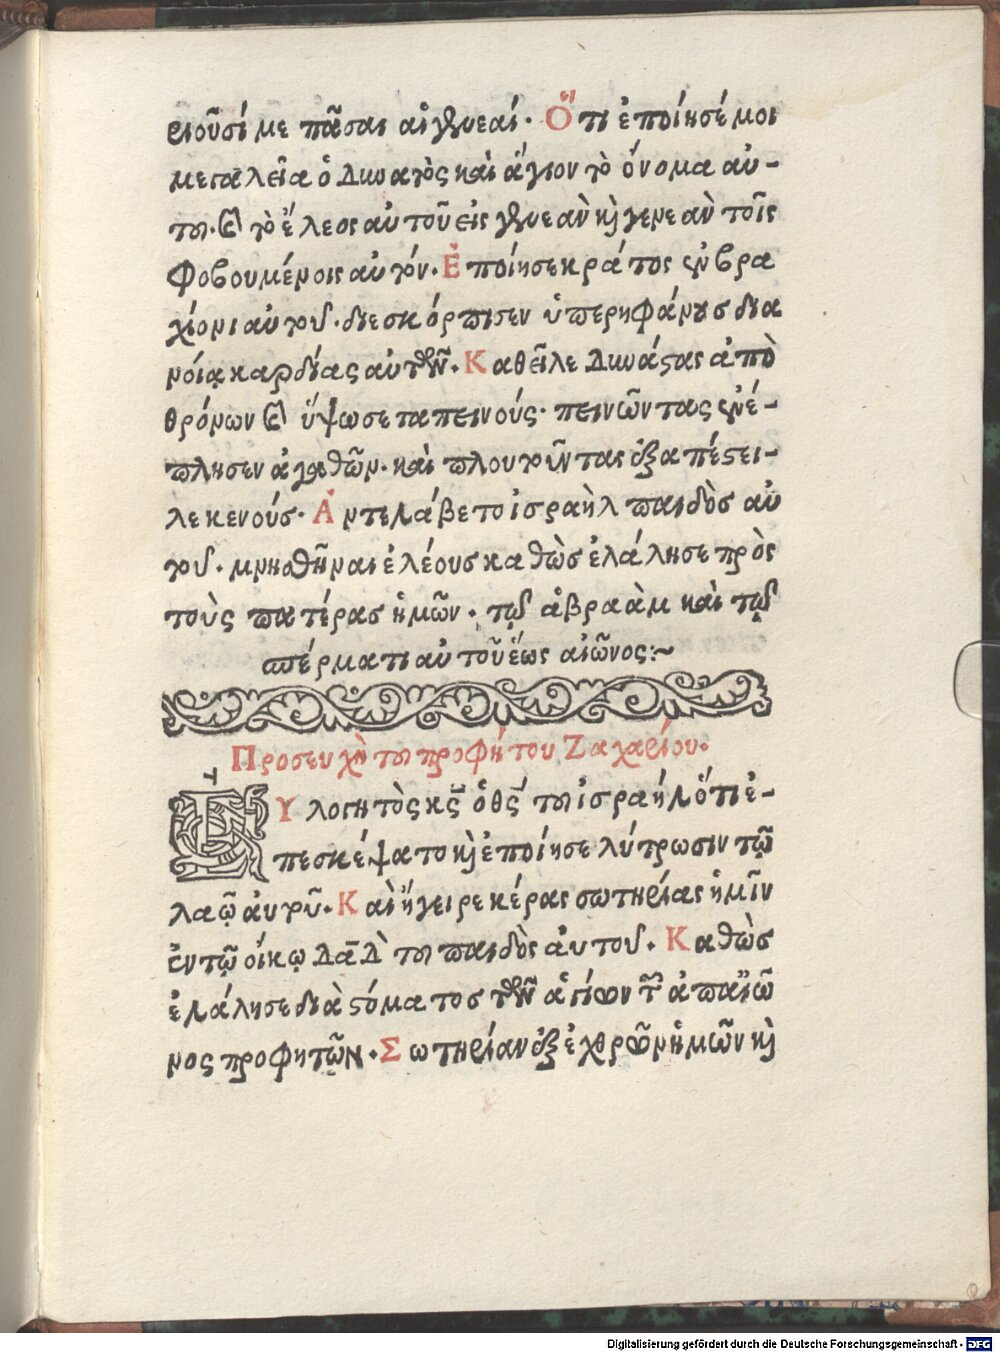 ριοῦσί με πᾶσαι αἱ γενεαί. Ὅτι ἐποίησέ μοι
μεγαλεῖα ὁ δυνατὸς καὶ ἅγιον τὸ ὄνομα αὐ-
του. καὶ τὸ ἔλεος αὐτοῦ εἰς γενεὰν κὶ γενεὰν τοῖς
φοβουμένοις αὐτόν. Ἐποίησε κράτος ἐν βρα
χίονι αὐτοῦ. διεσκόρπισεν ὑπερηφάνους δια
νοίᾳ καρδίας αὐτῶν. Καθεῖλε δυνάστας ἀπὸ
θρόνων καὶ ὕψωσε ταπεινούς. πεινῶντας ἐνέ-
πλησεν ἀγαθῶν. καὶ πλουτοῦντας ἐξαπέστει-
λε κενούς. Ἀντελάβετο ἰσραὴλ παιδὸς αὐ
τοῦ. μνησθῆναι ἐλέους καθὼς ἐλάλησε πρὸς
τοὺς πατέρας ἡμῶν. τῷ ἀβραὰμ καὶ τῷ
σπέρματι αὐτοῦ ἕως αἰῶνος:~
Προσευχὴ του προφήτου Ζαχαρίου.
Εὐλογητὸς κς ὁ θς του ἰσραήλ ὅτι ἐ-
πεσκέψατο κὶ ἐποίησε λύτρωσιν τῷ
λαῷ ἁυτοῦ. Καὶ ἤγειρε κέρας σωτηρίας ἡμῖν
ἐν τῷ οἴκῳ Δαδ του παιδὸς ἁυτοῦ. Καθὼς
ἐλάλησε διὰ στόματος τῶν ἁγίων τ ἀπαἰῶ
νος προφητῶν. Σωτηρίαν ἐξ ἐχθρῶν ἡμῶν κὶ
Digitalisierung gefördert durch die Deutsche Forschungsgemeinschaft - DFG